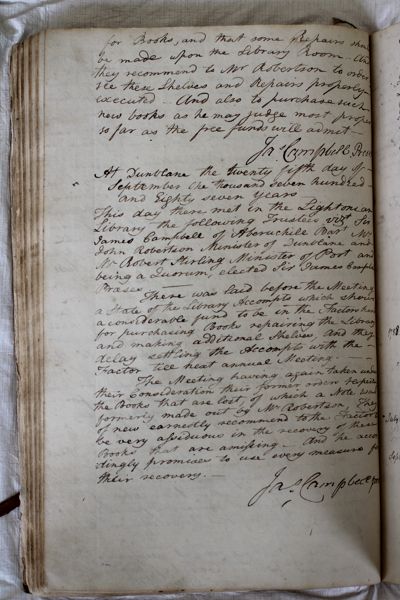 for Books, and that some Repairs
be made upon the Library Room. And
they recommend to Mr Robertson to order
see these Shelves and Repairs properly
executed. And also to purchase such
new books as he may judge most proper
so far as the free funds will admit —
Jas. Campbell
At Dunblane the twenty fifth day of
September One thousand seven hundred
and Eighty seven years
This day there met in the Lightonian
Library the following Trustees vizt Sir
James Campbell of Aberuchill Bart Mr
John Robertson Minister of Dunblane and
Mr Robert Stirling Minister of Port and
being a Quorum, elected Sir James Campbell
Præses. —
There was laid before the Meeting
a State of the Library Accompts which
a considerable fund to be in the Factors
for purchasing Books repairing the Library
and making additional Shelves and they
delay settling the Accompts with the -
Factor till next annual Meeting. —
The Meeting having again taken
their Consideration their former orders
the Books that are lost, of which a Note was
formerly made out by Mr Robertson, They
of new earnestly recommend to the Factor
be very assiduous in the recovery of these
Books that are amissing. — And he
dingly promises to use every measure for
their recovery. —
Jas. Campbell